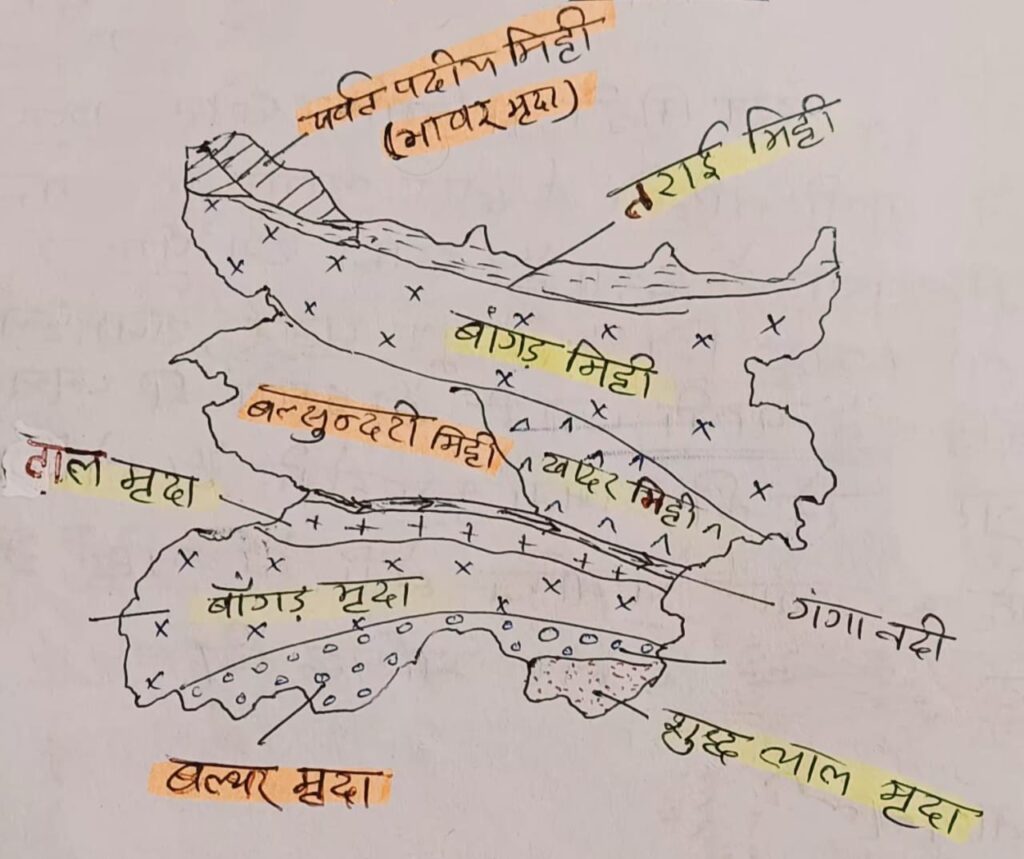 पर्वत पदीय मिट्टी
(भावर मृदा)
तराई मिट्टी
बांगड़ मिट्टी
बलसुन्दरी मिट्टी
खादर मिट्टी
टाल मृदा
बाँगड़ मृदा
गंगा नदी
बल्थर मृदा
शुद्ध लाल मृदा